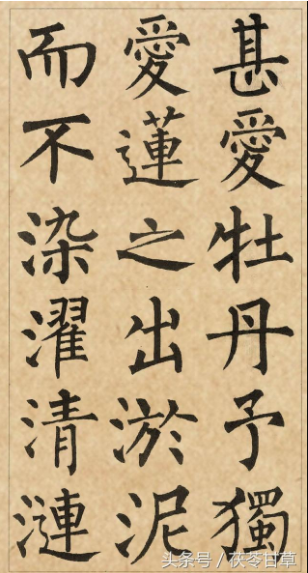 甚愛牡丹予獨
愛蓮之出淤泥
而不染濯清漣
头条号／茯苓甘草